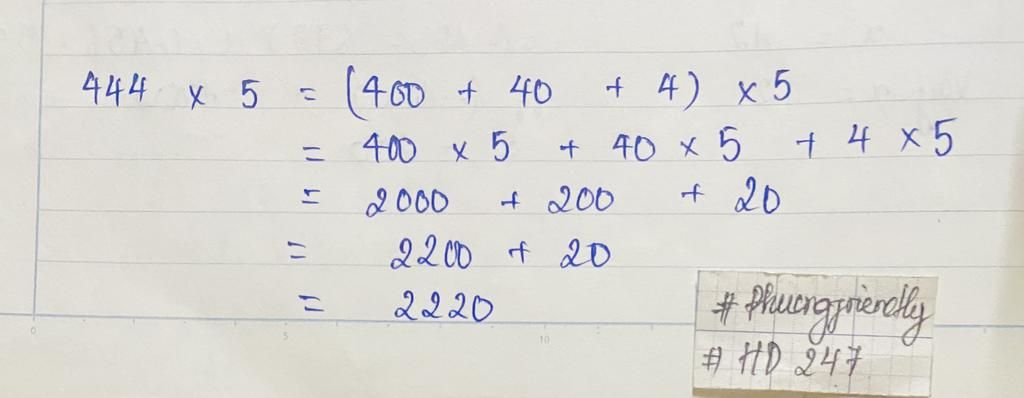 444 x 5 = (400 + 40 + 4) x 5
= 400 x 5 + 40 x 5 + 4 x 5
= 2000 + 200 + 20
= 2200 + 20
= 2220
# Phuongfriendly
# HD 247
0 5 10